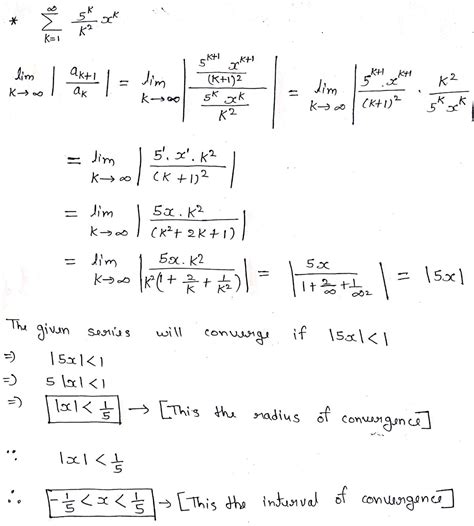 * ∞ Σ K=1 5^K/K² x^K
lim K→∞ | a_{K+1}/a_K | = lim K→∞ | (5^{K+1} x^{K+1}/(K+1)²) / (5^K x^K/K²) | = lim K→∞ | 5^{K+1}.x^{K+1}/(K+1)² . K²/5^K x^K |
= lim K→∞ | 5'. x'. K²/(K+1)² |
= lim K→∞ | 5x. K²/(K²+2K+1) |
= lim K→∞ | 5x. K²/K²(1+2/K+1/K²) | = | 5x/1+2/∞+1/∞² | = |5x|
The given series will converge if |5x|<1
⇒ |5x|<1
⇒ 5|x|<1
⇒ |x|<1/5 → [This the radius of convergence]
∵ |x|<1/5
∴ -1/5<x<1/5 → [This the interval of convergence]